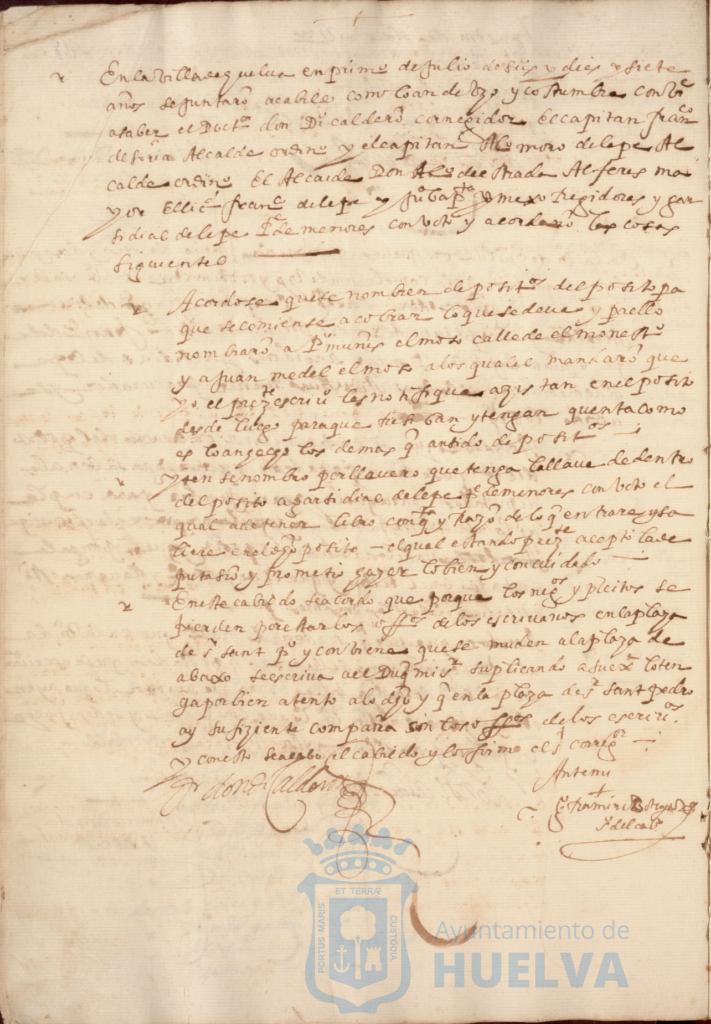 En la Villa de guelua en primo de Julio de seis y dies y siete
años se juntarõ a cabildo como lo an de uzo y costumbre conbi
a saber el Doctor don Di calderõ corregidor El capitan franco
de soria Alcalde ordino y el capitan Alo moro de lepe Al
calde ordino El Alcaide Don Alo de estrada Alferes ma
yor El licdo franco de lepe y Ju bapta Regidores y gar
si dias de lepe Pe de menores con voto y acordarõ las cosas
siguientes
Acordose que se nombren depositos del posito pa
que se comiense a cobrar lo que se deue y pa ello
nombrarõ a Po munis el moso calle de el monesto
y a Juan medel el moso a los quales mandarõ que
yo el prezte escriuo les notifique azistan en el posito
desde luego para que resiban y tengan quenta como
es lo an gego los demas q an sido deposits
yten se nombro por llauero que tenga la llaue de dentro
del posito a garsi dias de lepe pe de menores con voto el
qual a de tener libro con qta y Razõ de lo q entrare y sa
liere en el dgo posito – el qual estando prezte acepto la de
putasiõ y prometio gazer lo bien y con cuidado
En este cabildo se acordo que porque los negos y pleitos se
pierden por estar los offos de los escriuanos en la plaza
de sr sant po y conbiene que se muden a la plaza de
abaxo se escriua al Duq mi sr suplicando a su exa lo ten
ga por bien atento a lo dgo y q en la plaza de sr sant pedro
ay sufiziente compañia sin los offos de los escriuos.
y con esto se acabo el cabildo y lo firmo el sr corregor
Dr don di Calderõ
Ante mi
esno del cabo
ET TERRÆ
PORTUS MARIS
CUSTODIA
Ayuntamiento de
HUELVA